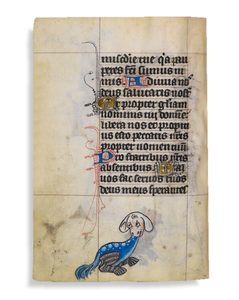 misc̄die tue q̄a pau
peres fc̄i sumus ni
mis Adiuua nos
deus salutaris nost̄
Et propter gl̄iam
nominis tui domine
libera nos et propiciꝰ
esto peccatis nr̄is
propter nomen tuū
Pro fratribus nr̄is
absentibus Sal
uos fac seruos tuos
deus meus sperantes